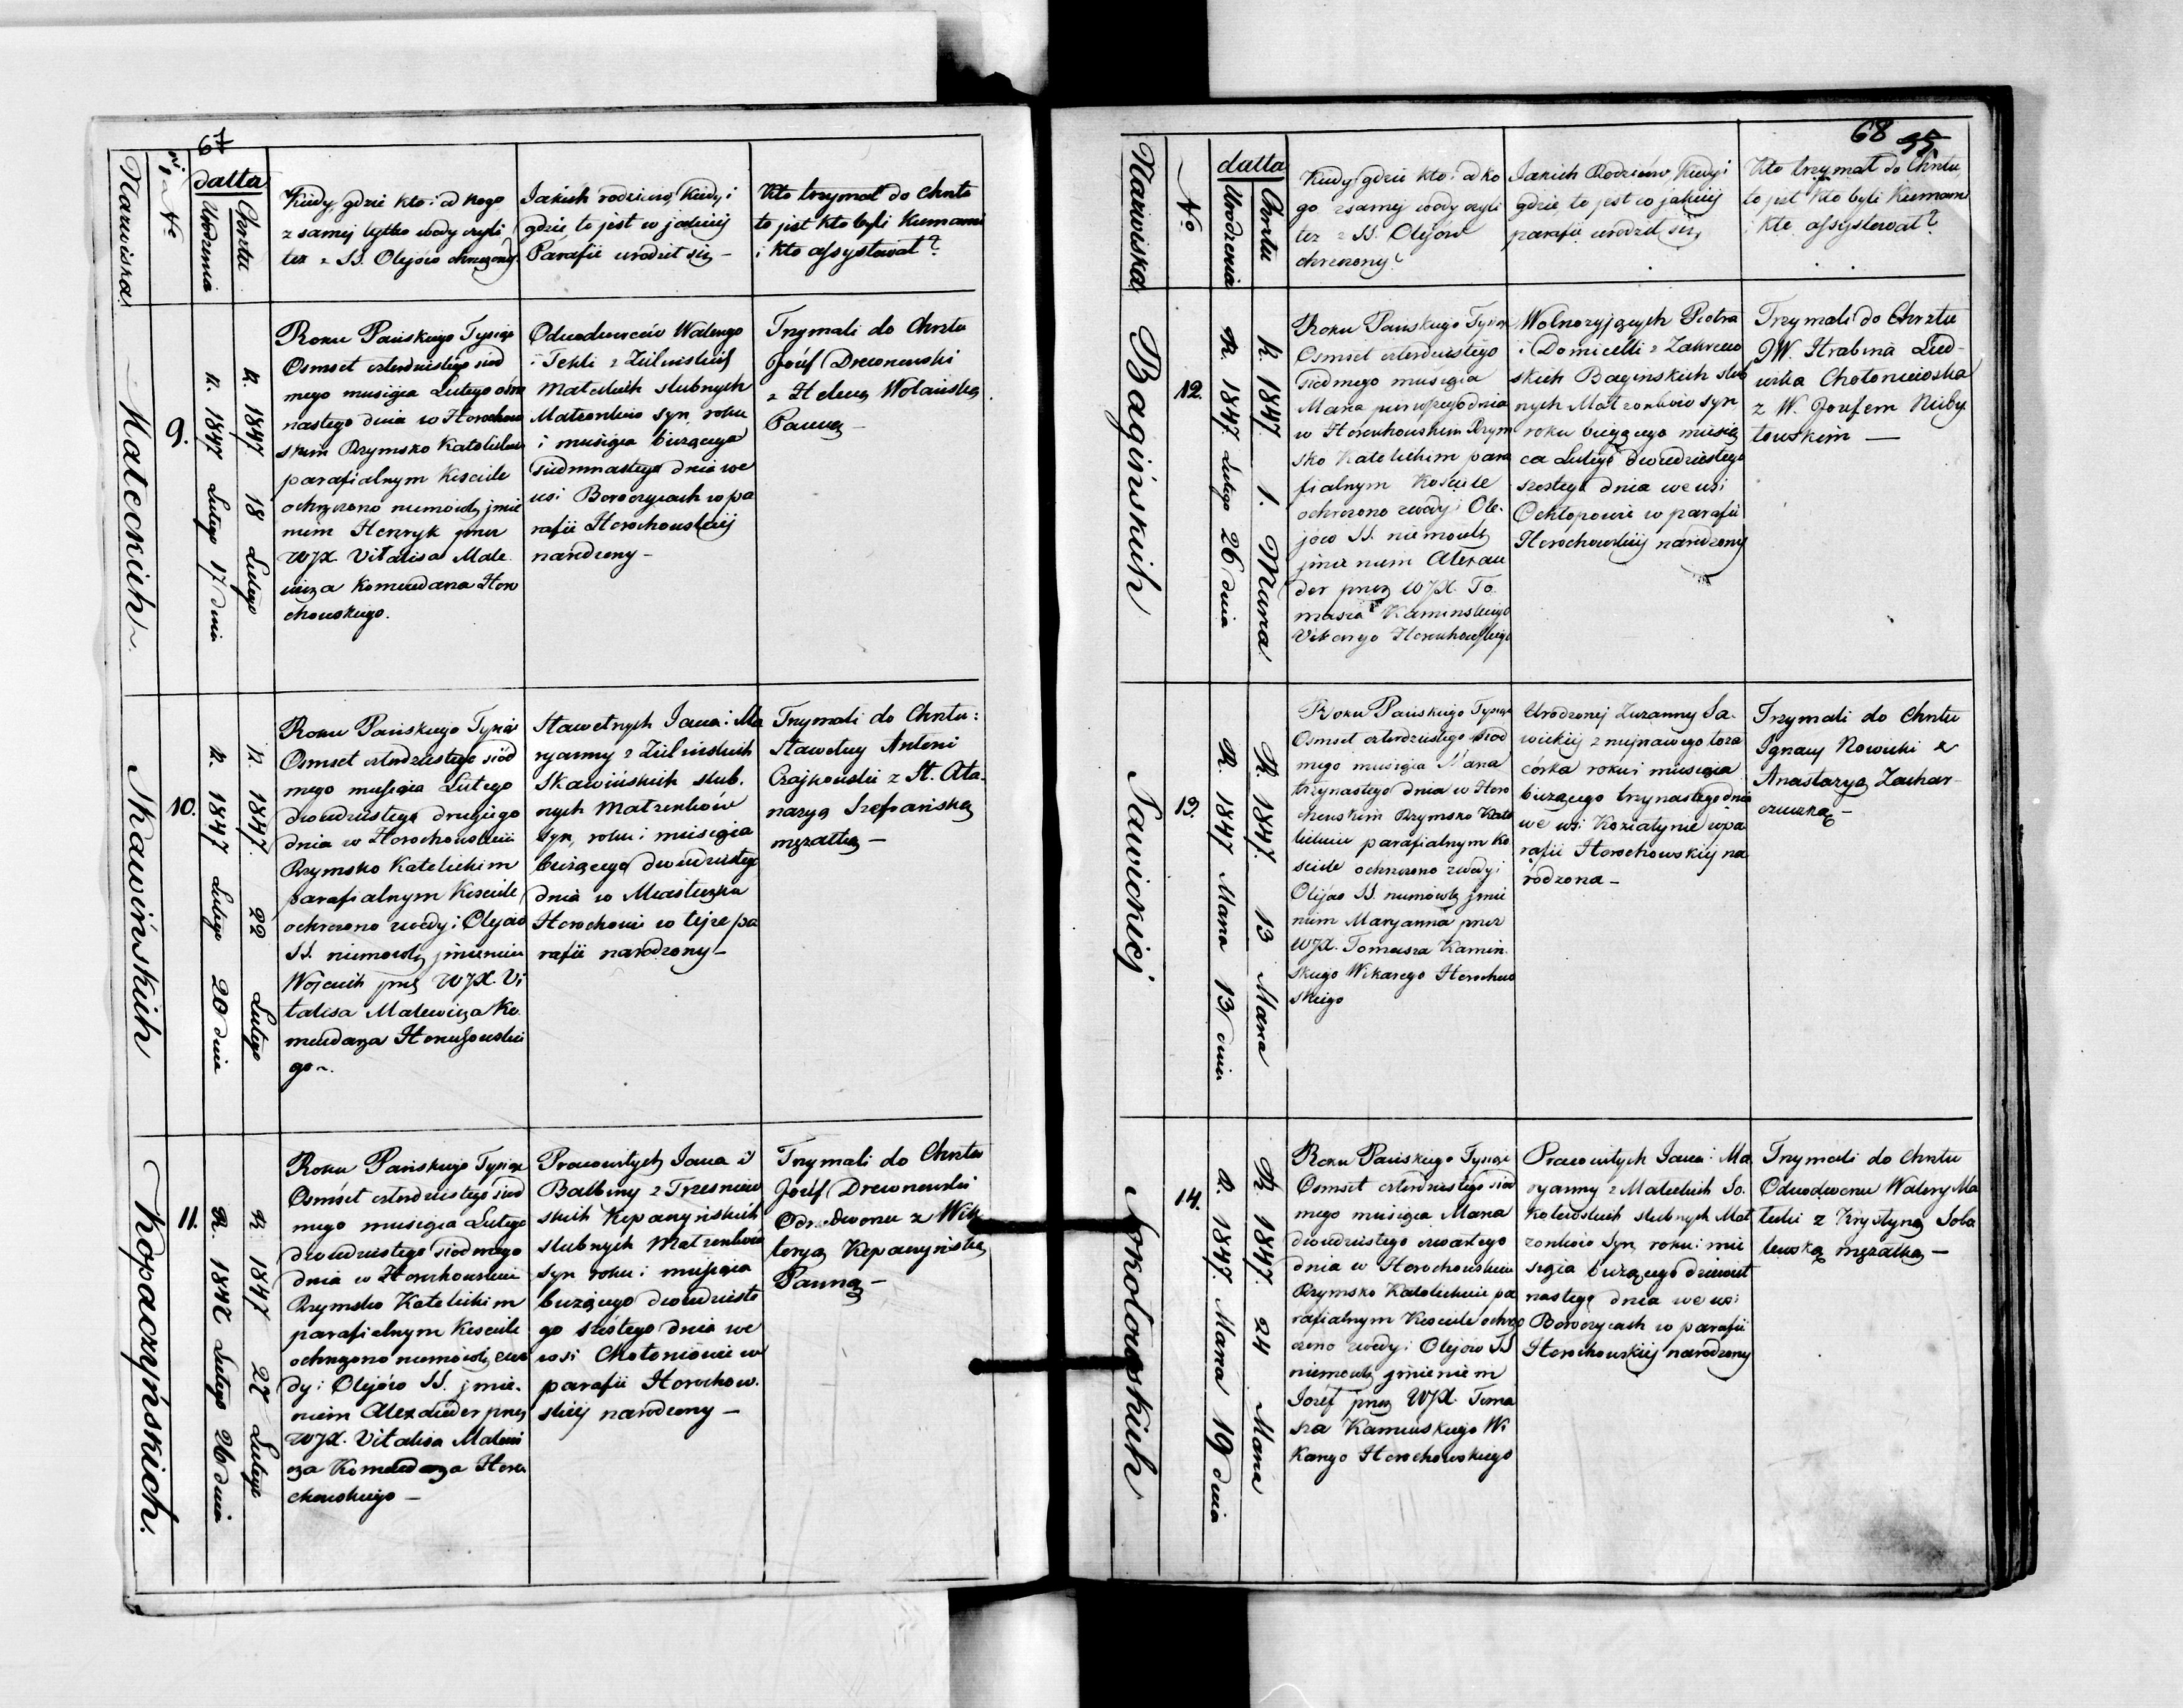 67
Nazwiska
No
datta
Urodzenia
Chrztu
Kiedy, gdzie kto i od kogo
z samej tylko wody czyli
też z SS. Olejów chrzczony.
Jakich rodziców, Kiedy i
gdzie to jest w jakiéj
Parafii urodził się –
Kto trzymał do chrztu
to jest kto byli Kumami
i kto assystował?
Małeckich
9.
R. 1847 Lutego 17 dnia
R. 1847 18 Lutego
Roku Pańskiego Tysiąc
Osmset czterdziestego siód
mego miesiąca Lutego ośm
nastego dnia w Horochow
skim Rzymsko Katolickim
parafialnym Kosciele
ochrzczono niemowlę jmie
niem Henryk przez
WJX. Vitalisa Male
wicza Komendarza Horo
chowskiego.
Odnodworców Walerego
i Tekli z Zielinskich
Małeckich slubnych
Małżonków syn, roku
i miesiąca bieżącego
siedmnastego dnia we
wsi Boroczycach w pa
rafii Horochowskiéj
narodzony –
Trzymali do Chrztu
Józef Drewnowski
z Heleną Wolańską
Panną –
Skawińskich
10.
R. 1847 Lutego 20 dnia
R. 1847. 22 Lutego
Roku Pańskiego Tysiąc
Osmset czterdziestego siód
mego miesiąca Lutego
dwudziestego drugiego
dnia w Horochowskim
Rzymsko Katolickim
parafialnym Kosciele
ochrzczono z wody i Olejów
SS. niemowlę jmieniem
Wojciech przez WJX. Vi
talisa Malewicza Ko
mendarza Horochowskie
go ~.
Sławetnych Jana i Ma
ryanny z Zielinskich
Skawińskich slub.
nych Małżonków
syn, roku i miesiąca
bieżącego dwudziestego
dnia w Miasteczku
Horochowie w tejże pa
rafii narodzony –
Trzymali do Chrztu:
Sławetny Antoni
Czajkowski z St. Ata
nazyą Szefrańską
mężatką –
Kopaczyńskich.
11.
R. 1847 Lutego 26 dnia
R. 1847 27 Lutego
Roku Pańskiego Tysiąc
Osmset czterdziestego siód
mego miesiąca Lutego
dwudziestego siodmego
dnia w Horochowskim
Rzymsko Katolickim
parafialnym Kosciele
ochrzczono niemowlę z wo
dy i Olejów SS. jmie.
niem Alexander przez
WJX. Vitalisa Malewi
cza Komendarza Horo
chowskiego –
Pracowitych Jana i
Balbiny z Trzesniew
skich Kopaczyńskich
slubnych Małżonków
syn roku i miesiąca
bieżącego dwudzieste
go szóstego dnia we
wsi Chołoniowie w
parafii Horochow.
skiéj narodzony –
Trzymali do Chrztu
Józef Drewnowski
Odnodworzec z Wik
toryą Kopaczyńską
Panną –
68 35.
Nazwiska
No
datta
Urodzenia
Chrztu
Kiedy gdzie kto i od ko
go z samej wody czyli
też z SS. Olejów
chrzczony?
Jakich Rodziców Kiedy i
gdzie, to jest w jakiéj
parafii urodził się,
Kto trzymał do Chrztu
to jest Kto byli Kumami
i kto assystował?
Bagińskich
12.
R. 1847. Lutego 26 dnia
R. 1847. 1. Marca
Roku Pańskiego Tysiąc
Osmset czterdziestego
siódmego miesiąca
Marca pierwszego dnia
w Horochowskim Rzym
sko Katolickim para
fialnym Kosciele
ochrzczono z wody i Ole.
jów SS. niemowlę
jmieniem Alexan
der przez WJX. To
masza Kaminskiego
Vikarego Horochowskiego
Wolnożyjących Piotra
i Domicelli z Zakrzew
skich Baginskich slub
nych Małżonków syn
roku bieżącego miesią
ca Lutego dwudziestego
szostego dnia we wsi
Ochłopowie w parafii
Horochowskiéj narodzony
Trzymali do Chrztu
JW. Hrabina Lud-
wika Chołoniewska
z W. Jozefem Nieby
towskim –
Sawickiéj
13.
R. 1847 Marca 13 dnia
R. 1847. 13 Marca
Roku Pańskiego Tysiąc
Osmset czterdziestego siód
mego miesiąca Marca
trzynastego dnia w Horo
chowskim Rzymsko Kato
lickim parafialnym Ko
sciele ochrzczono z wody i
Olejów SS. niemowlę jmie
niem Maryanna przez
WJX. Tomasza Kamin
skiego Wikarego Horochow
skiego
Urodzonéj Zuzanny Sa-
wickiéj z nieprawego łoża
córka roku i miesiąca
bieżącego trzynastego dnia
we wsi Koziatynie w pa
rafii Horochowskiéj na
rodzona –
Trzymali do Chrztu
Ignacy Nowicki z
Anastazyą Zachar-
czuczką –
Sokołowskich
14.
R. 1847. Marca 19 dnia
R. 1847. 24 Marca
Roku Pańskiego Tysiąc
Osmset czterdziestego siód
mego miesiąca Marca
dwudziestego czwartego
dnia w Horochowskim
Rzymsko Katolickim pa
rafialnym Kosciele ochrz
czono z wody i Olejów SS
niemowlę jmieniem
Jozéf przez WJX. Toma
sza Kaminskiego Wi
karego Horochowskiego
Pracowitych Jana i Ma
ryanny z Małeckich So.
kołowskich slubnych Mał
żonków syn, roku i mie
siąca bieżącego dziewięt
nastego dnia we wsi
Boroczycach w parafii
Horochowskiéj narodzony
Trzymali do Chrztu
Odnodworzec Walery Ma
łecki z Krystyną Soko
łowską mężatką –